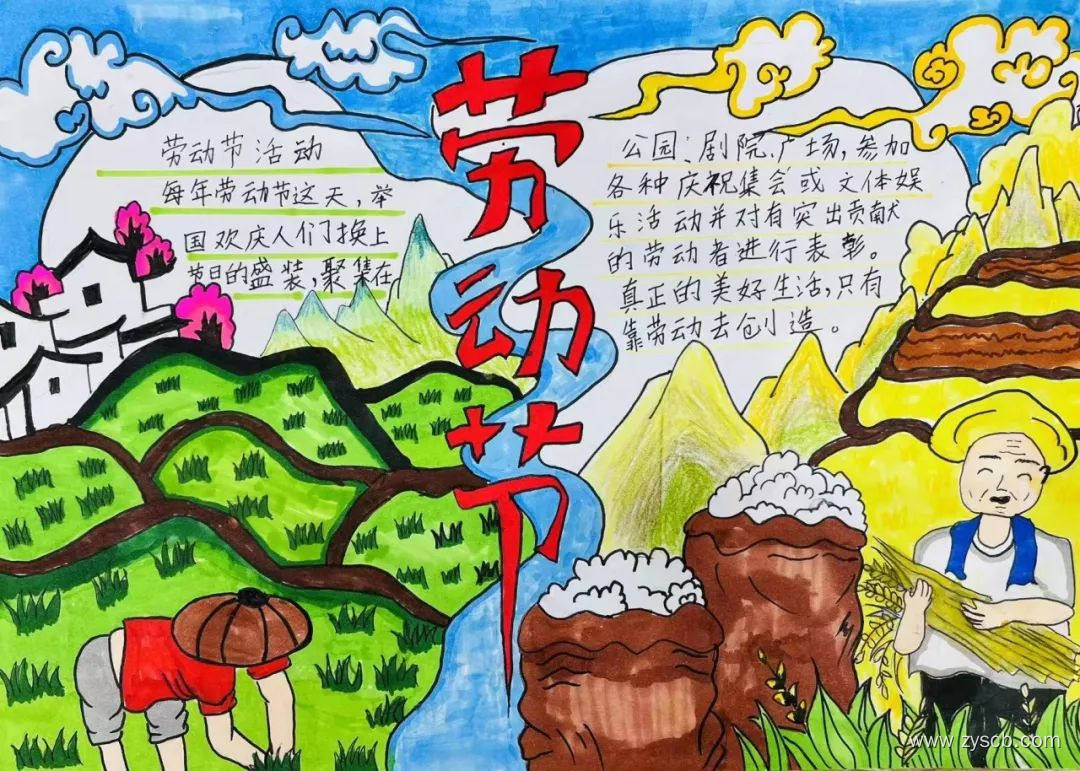 劳动节
劳动节活动
每年劳动节这天，举
国欢庆人们换上
节日的盛装，聚集在
公园、剧院、广场，参加
各种庆祝集会或文体娱
乐活动并对有突出贡献
的劳动者进行表彰。
真正的美好生活，只有
靠劳动去创造。
www.zyscb.com